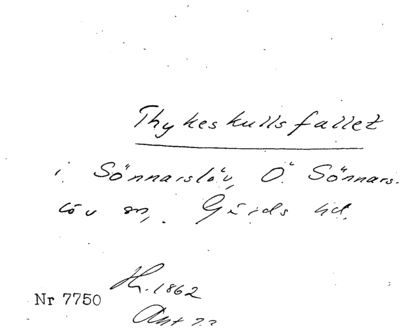 Thykeskullsfallet
i Sönnarslöv, Ö. Sönnars-
löv sn, Gärds hd.
H. 1862
Nr 7750
Ant